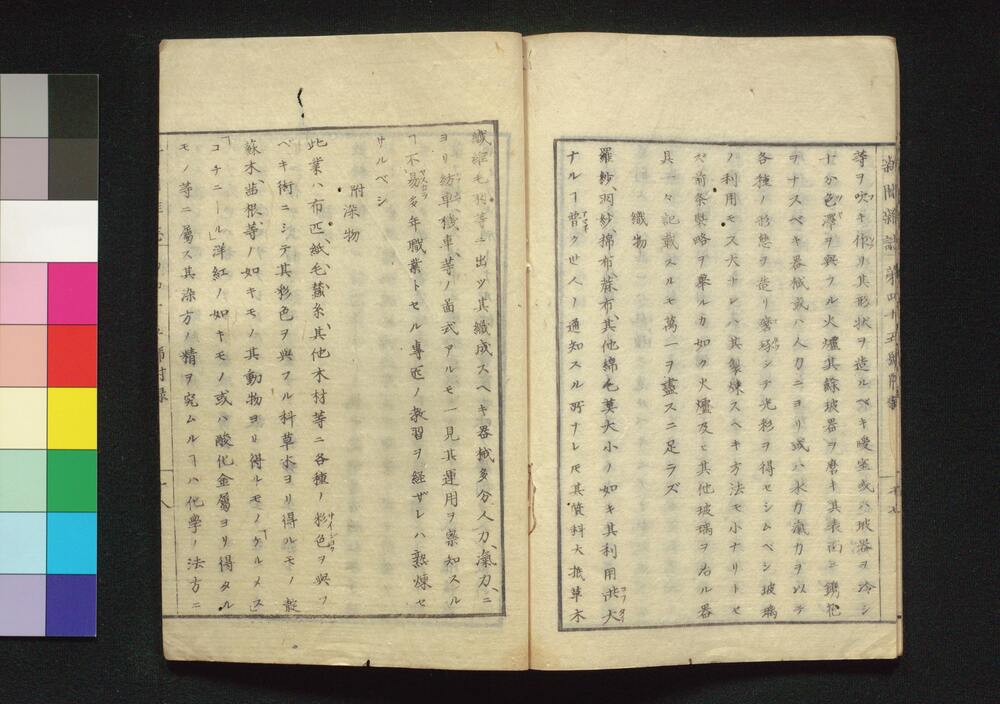 等ヲ吹キ作リ其形状ヲ造ルベキ暖室或ハ玻器ヲ冷シ
十分色澤ヲ與フル火爐其餘玻器ヲ磨キ其表面ニ鐫花
ヲナスベキ器械或ハ人力ニヨリ或ハ水力氣力ヲ以テ
各種ノ形態ヲ造リ磨琢シテ光彩ヲ得セシムベシ玻璃
ノ利用モス大ナレハ其製煉スヘキ方法モ小ナリトセ
ズ前条槩略ヲ擧ルカ如ク火爐及ヒ其他玻璃ヲ為ル器
具一々記載スルモ萬一ヲ盡スニ足ラズ
織物
羅紗、呉紗、棉布、蔴布、其他綿毛莫大小ノ如キ其利用洪大
ナルヿ普ク世人ノ通知スル所ナレ𪜈其質料大抵草木
繊維毛羽等ニ出ツ其織成スヘキ器械多分人力、氣力、ニ
ヨリ紡車機車、等ノ歯式アルモ一見其運用ヲ察知スル
ヿ不易多年職業トセル專匠ノ教習ヲ経ザレハ熟煉セ
サルベシ
附染物
此業ハ布匹、紙毛、蠶糸、其他木材等ニ各種ノ彩色ヲ與フ
ベキ術ニシテ其彩色ヲ與フル科草木ヨリ得ルモノ靛
蘇木茜根、等ノ如キモノ其動物ヨリ得ルモノ「ケルメス」
「コチニール」洋紅ノ如キモノ或ハ酸化金屬ヨリ得タル
モノ等ニ屬ス其染方ノ精ヲ究ムルヿハ化學ノ法方ニ